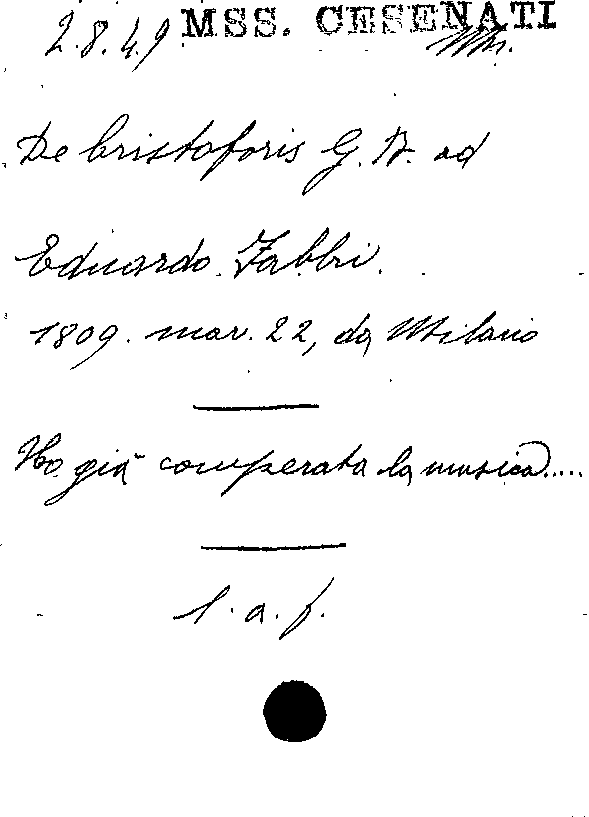 2.8.49 MSS. CESENATI
De Cristoforis G. B. ad
Eduardo Fabbri.
1809. mar. 22, da Milano
Ho già comperata la musica....
l. a. f.